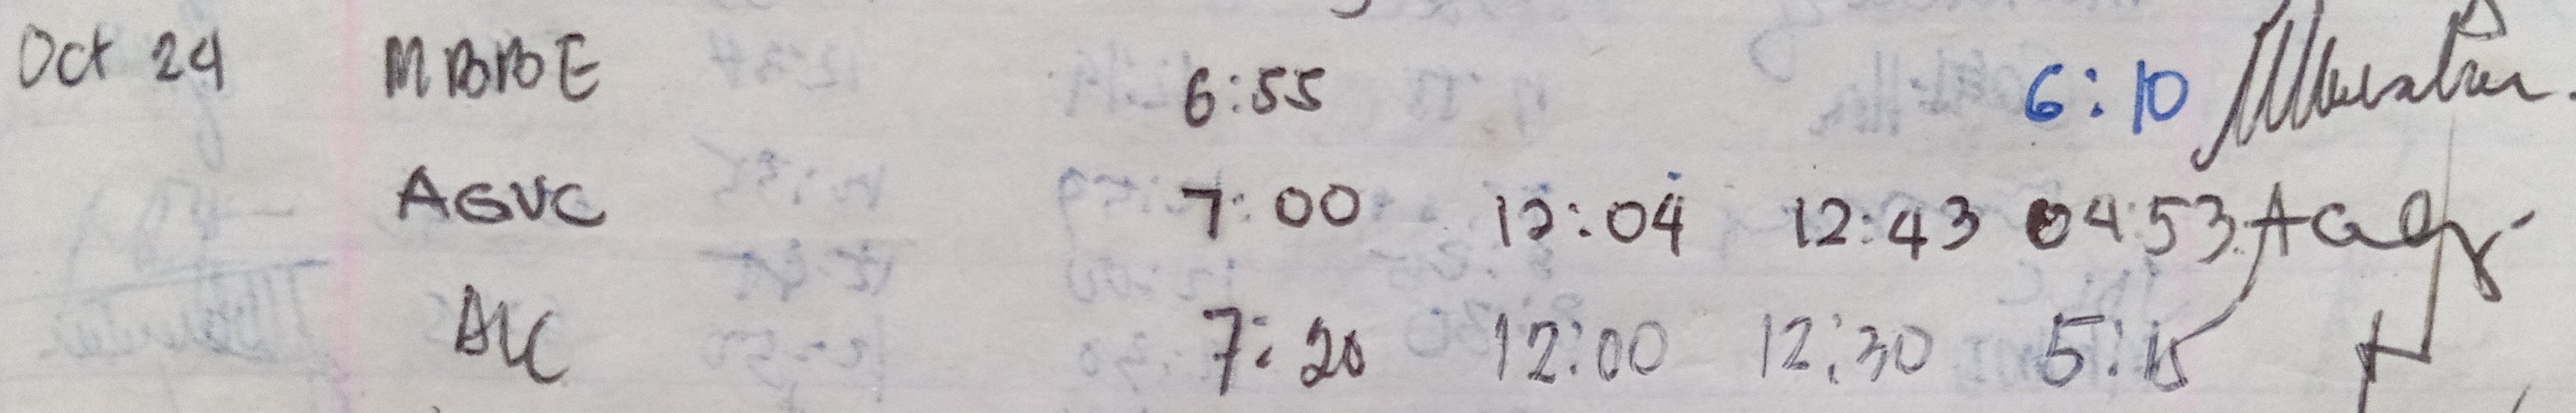 Oct 24 MBBE 6:55 6:10
AGVC 7:00 12:04 12:43 04:53
ALC 7:20 12:00 12:30 5:15